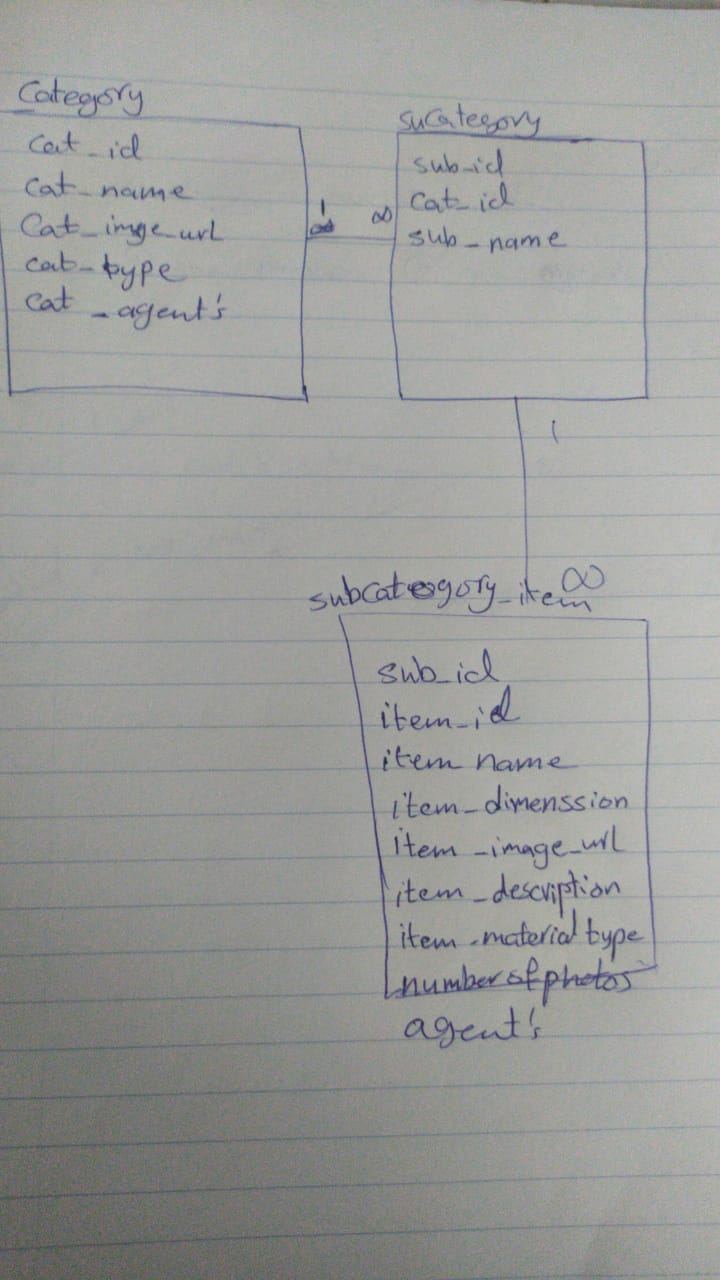 Category
cat_id
cat_name
Cat_imge_url
cat_type
cat_agent's
1
∞
suCategory
sub_id
cat_id
sub_name
1
∞
subcategory_item
sub_id
item_id
item name
item_dimenssion
item_image_url
item_description
item_material type
number of photos
agent's